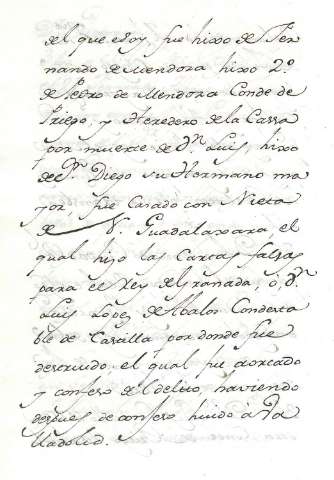 del que es oy, fue hixo de Fer
nando de Mendoza hixo 2º.
de Pedro de Mendoza Conde de
Priego, y Heredero de la Cassa
por muerte de Dn. Luis hixo
de Dn. Diego su Hermano ma
yor. fue Casado con Nieta
de V. Guadalaxara, el
qual hizo las Cartas falsas
para el Rey de Granada, ô Dn.
Luis Lopez de Abalos Condesta
ble de Castilla por donde fue
destruido, el qual fue aorcado
y confeso el delito, haviendo
despues de confeso huido â Va
lladolid.